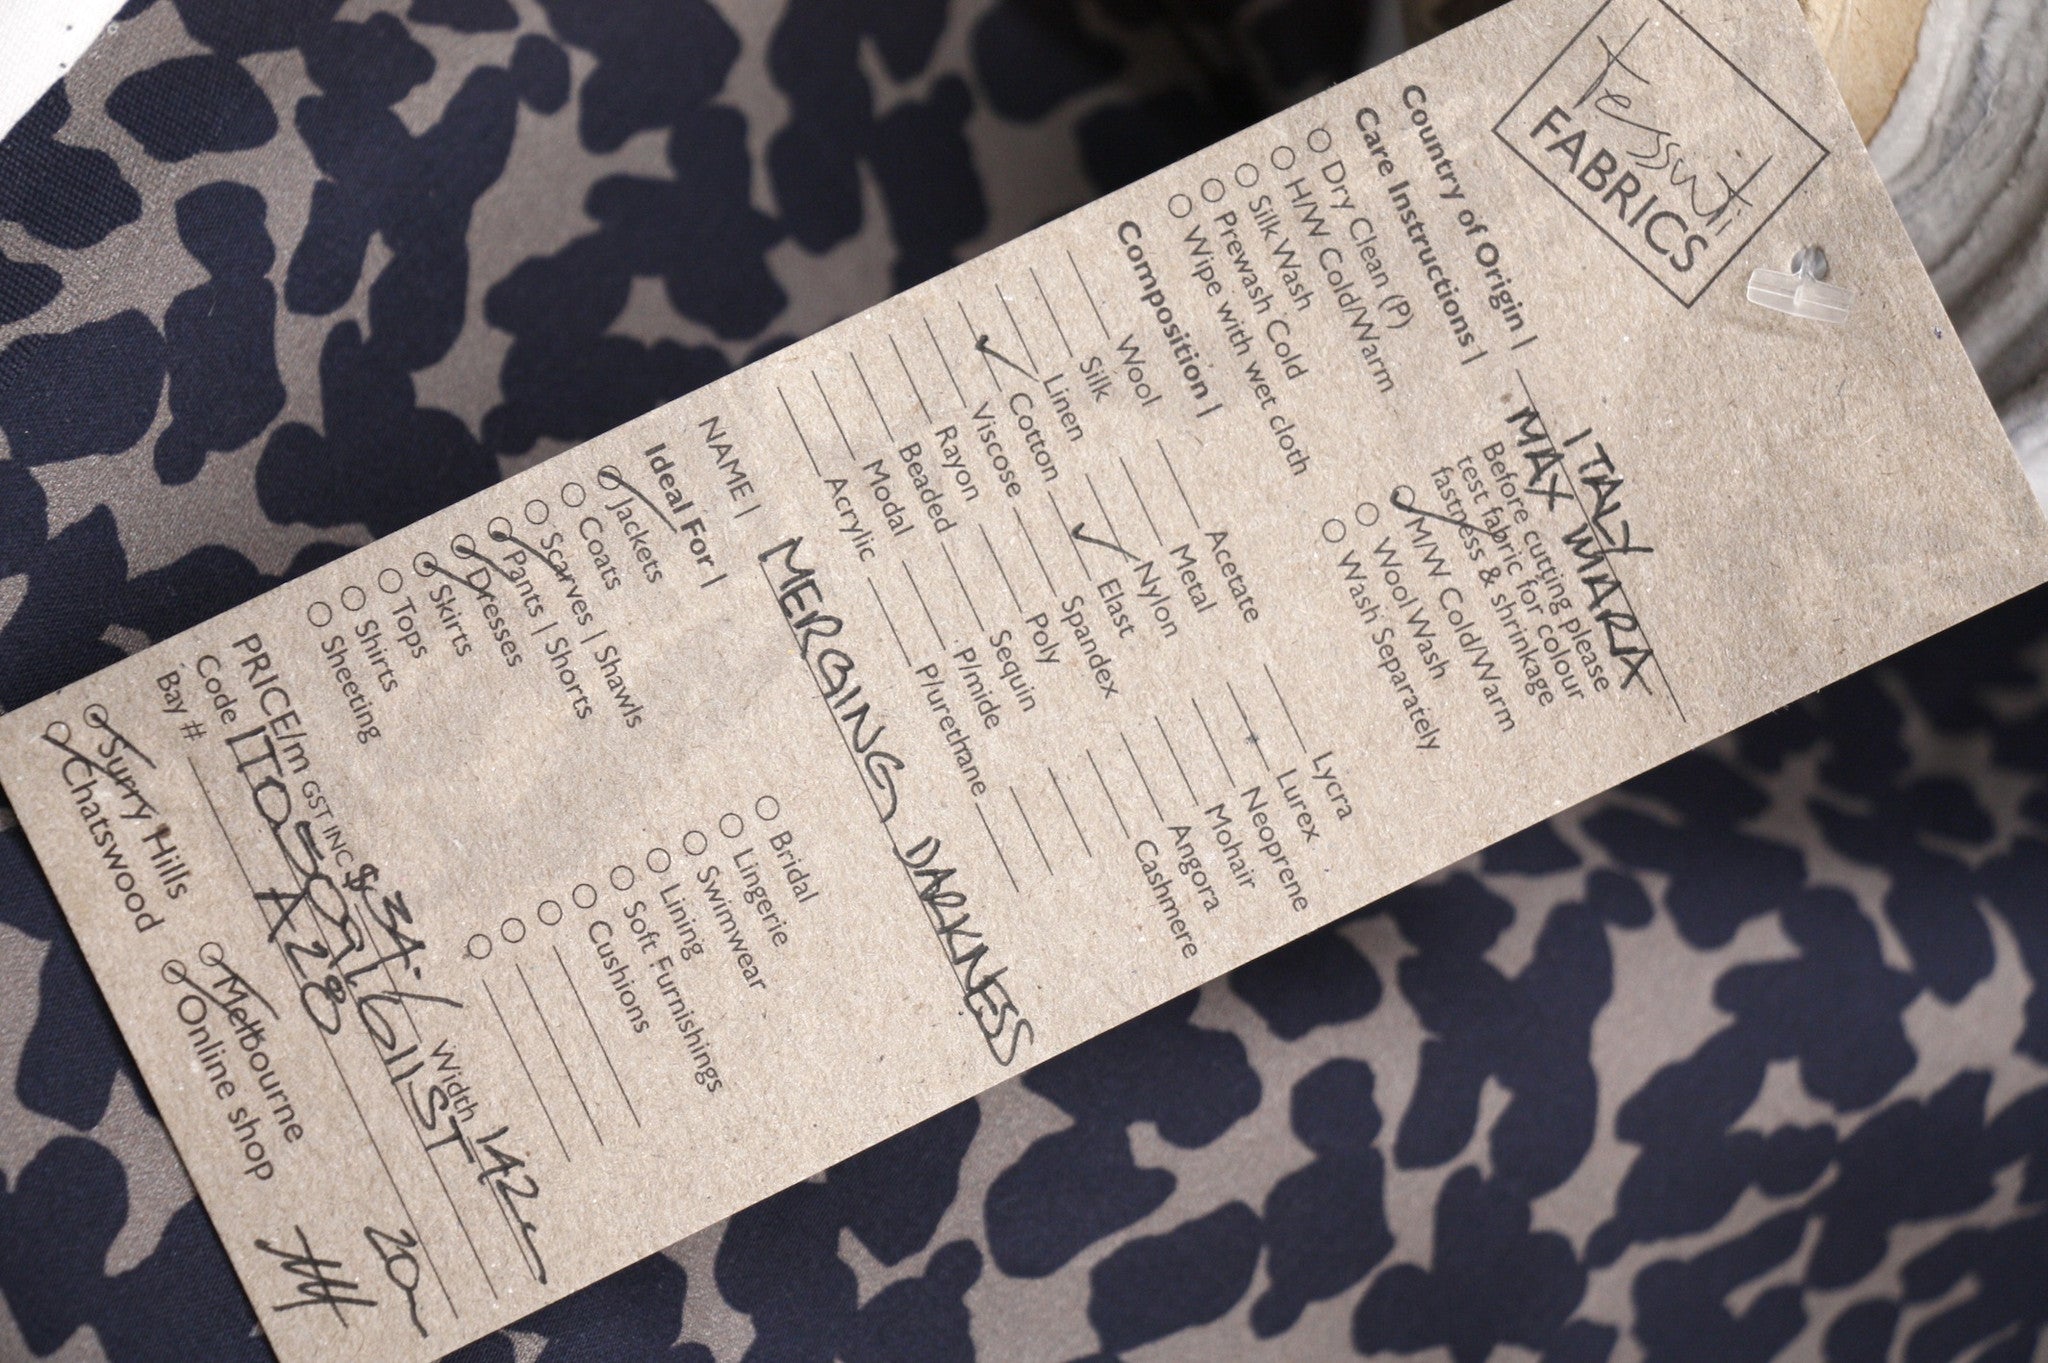 tessuti
FABRICS
Country of Origin | ITALY
MAX MARA
Care Instructions | Before cutting please
test fabric for colour
fastness & shrinkage
Dry Clean (P)
H/W Cold/Warm
Silk Wash
Prewash Cold
Wipe with wet cloth
M/W Cold/Warm
Wool Wash
Wash Separately
Composition |
Wool Acetate Lycra
Silk Metal Lurex
Linen Nylon Neoprene
Cotton Elast Mohair
Viscose Spandex Angora
Rayon Poly Cashmere
Beaded Sequin
Modal P/mide
Acrylic P/urethane
NAME | MERGING DARKNESS
Ideal For |
Jackets
Coats
Scarves | Shawls
Pants | Shorts
Dresses
Skirts
Tops
Shirts
Sheeting
Bridal
Lingerie
Swimwear
Lining
Soft Furnishings
Cushions
PRICE/m GST INC $34. Width 142
Code
Bay # A28
20m
Surry Hills Melbourne
Chatswood Online shop